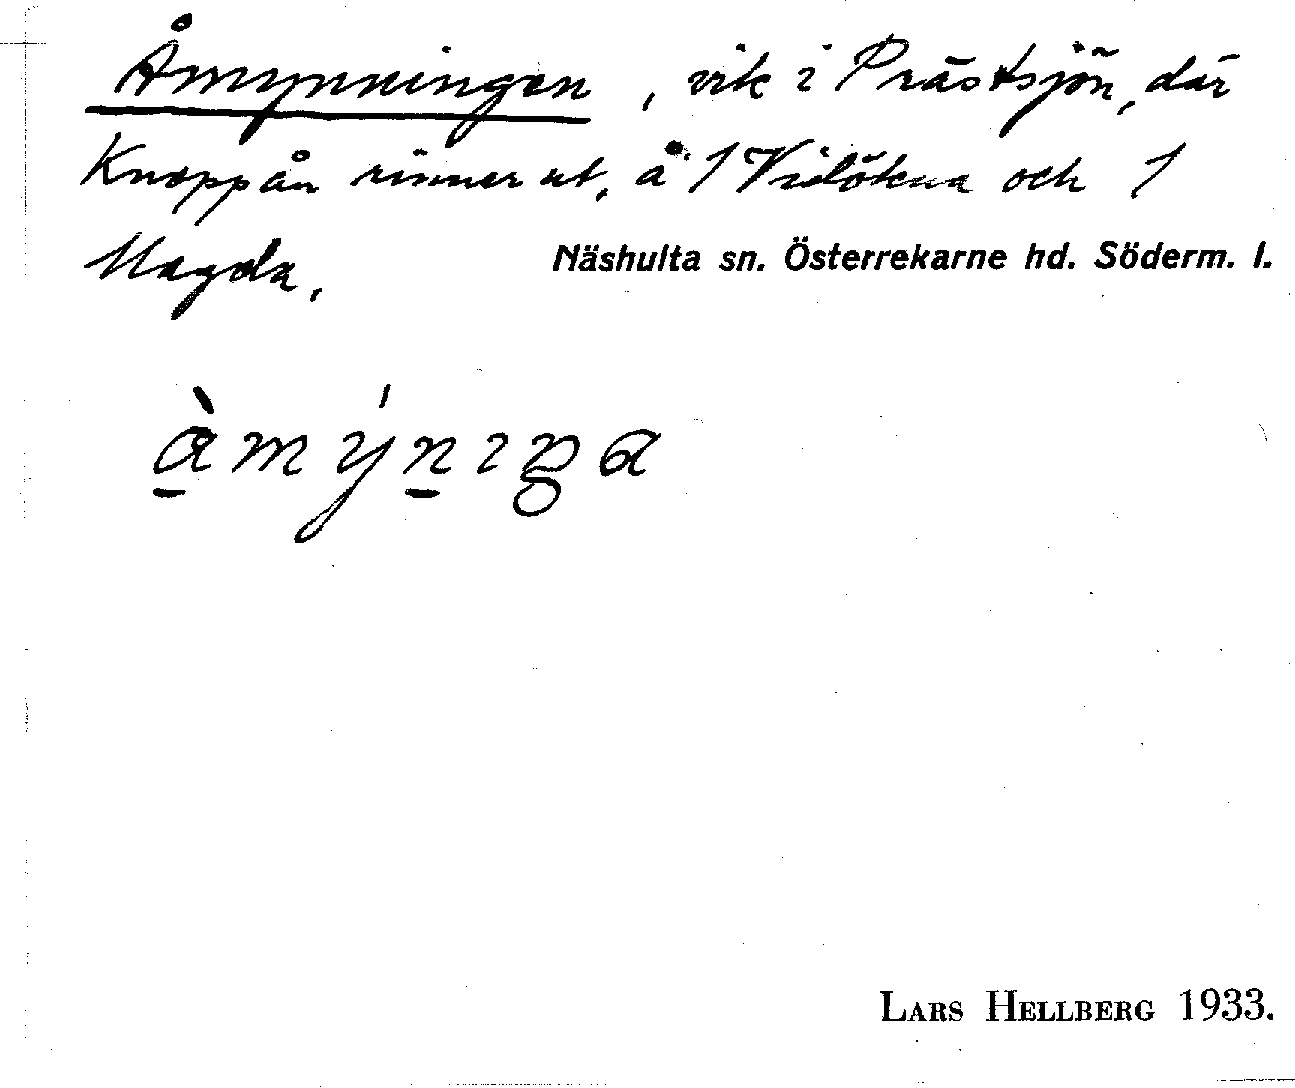 Åmynningen, vik i Prästsjön, där
Knoppån rinner ut, å 1 Vidökna och 1
Magda,
Näshulta sn. Österrekarne hd. Söderm. l.
LARS HELLBERG 1933.